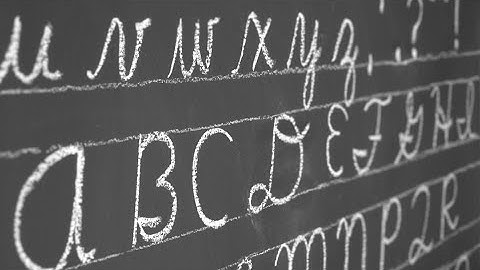 u v w x y z , . ? !
A B C D E F G H I
M N O P Q R